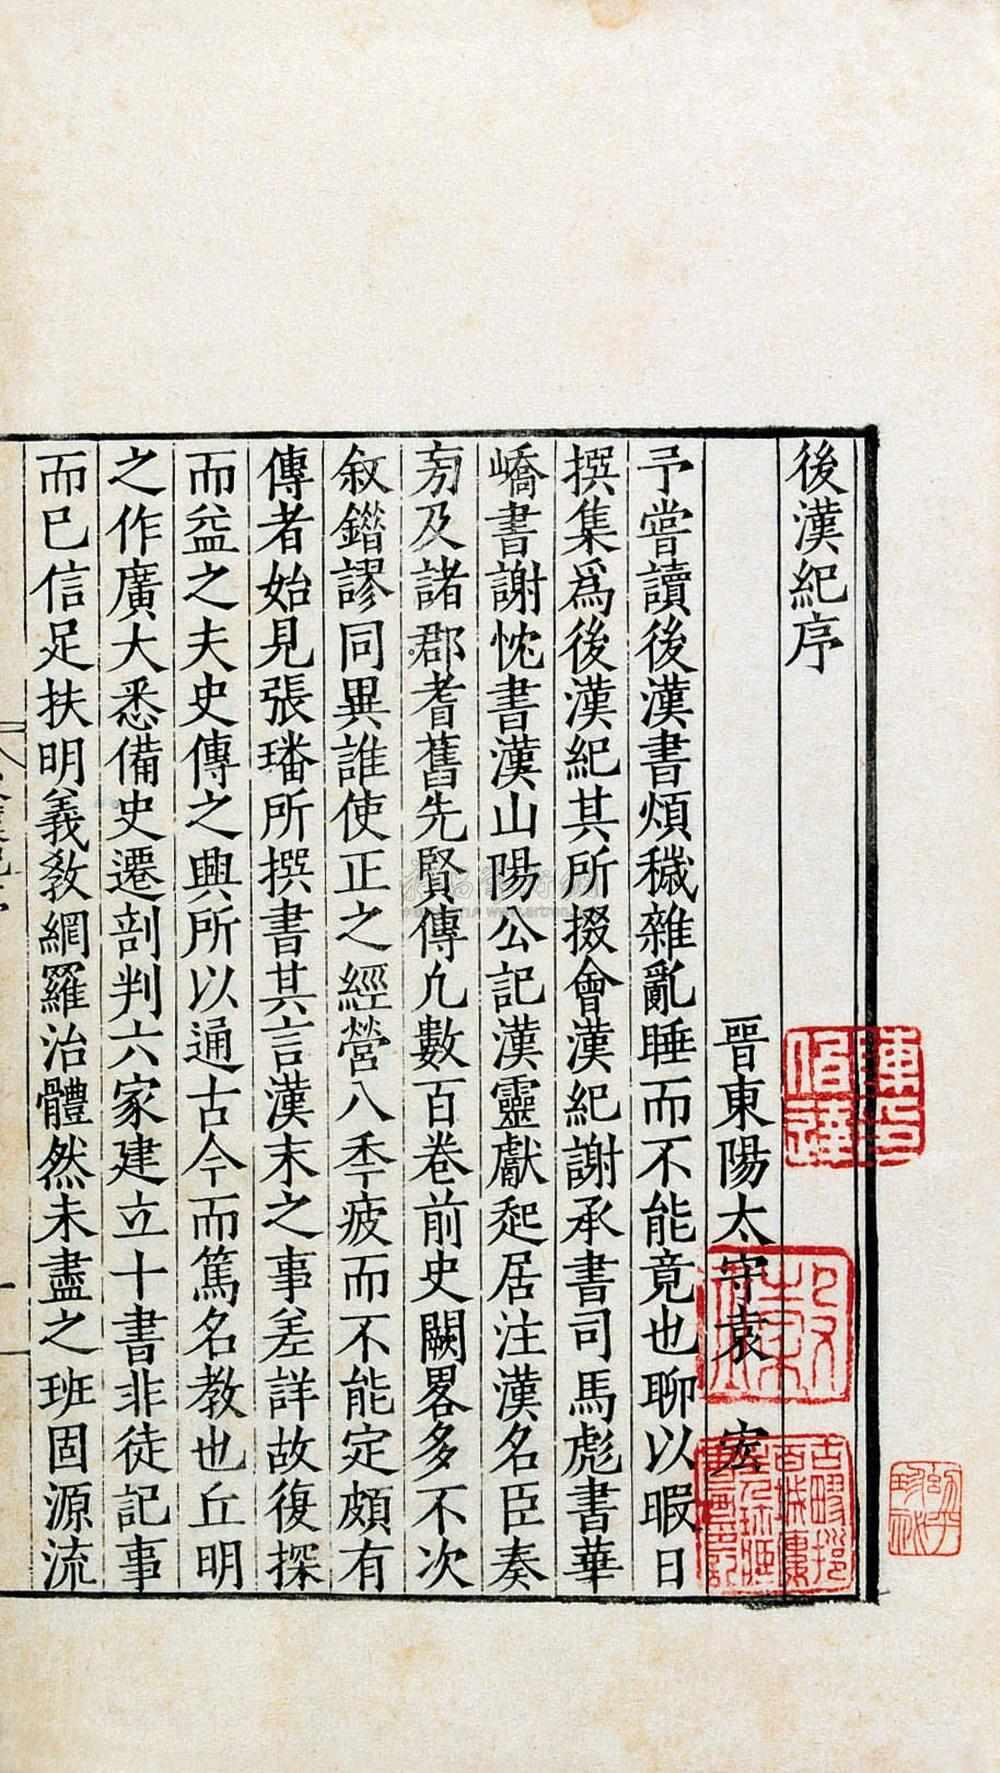 後漢紀序
晉東陽太守袁　宏
予嘗讀後漢書煩穢雜亂睡而不能竟也聊以暇日
撰集爲後漢紀其所掇會漢紀謝承書司馬彪書華
嶠書謝忱書漢山陽公記漢靈獻起居注漢名臣奏
旁及諸郡耆舊先賢傳凢數百卷前史闕畧多不次
叙錯謬同異誰使正之經營八秊疲而不能定頗有
傳者始見張璠所撰書其言漢末之事差詳故復探
而益之夫史傳之興所以通古今而篤名教也丘明
之作廣大悉備史遷剖判六家建立十書非徒記事
而已信足扶明義教網羅治體然未盡之班固源流